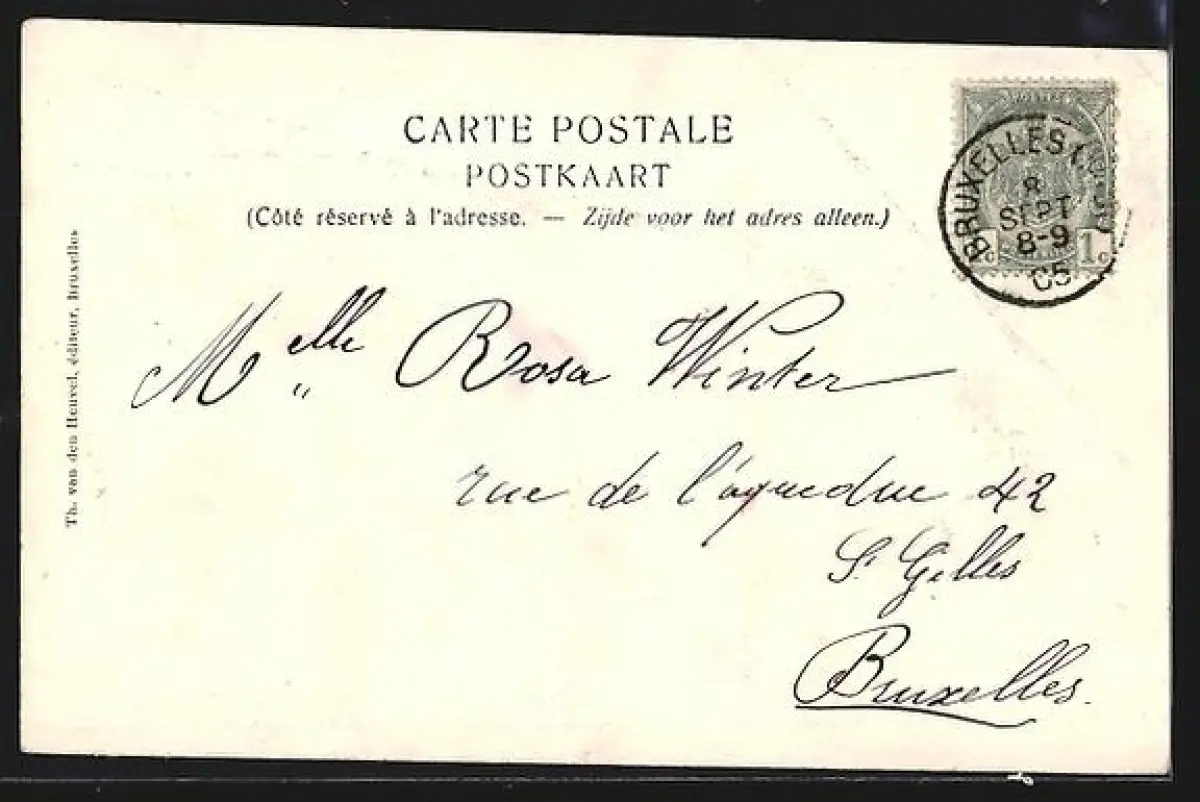 CARTE POSTALE
POSTKAART
(Côté réservé à l'adresse. — Zijde voor het adres alleen.)
BRUXELLES
8
SEPT
8-9
05
1c
Th. van den Heuvel, éditeur, Bruxelles
Melle Rosa Winter
rue de l'aqueduc 42
St Gilles
Bruxelles.